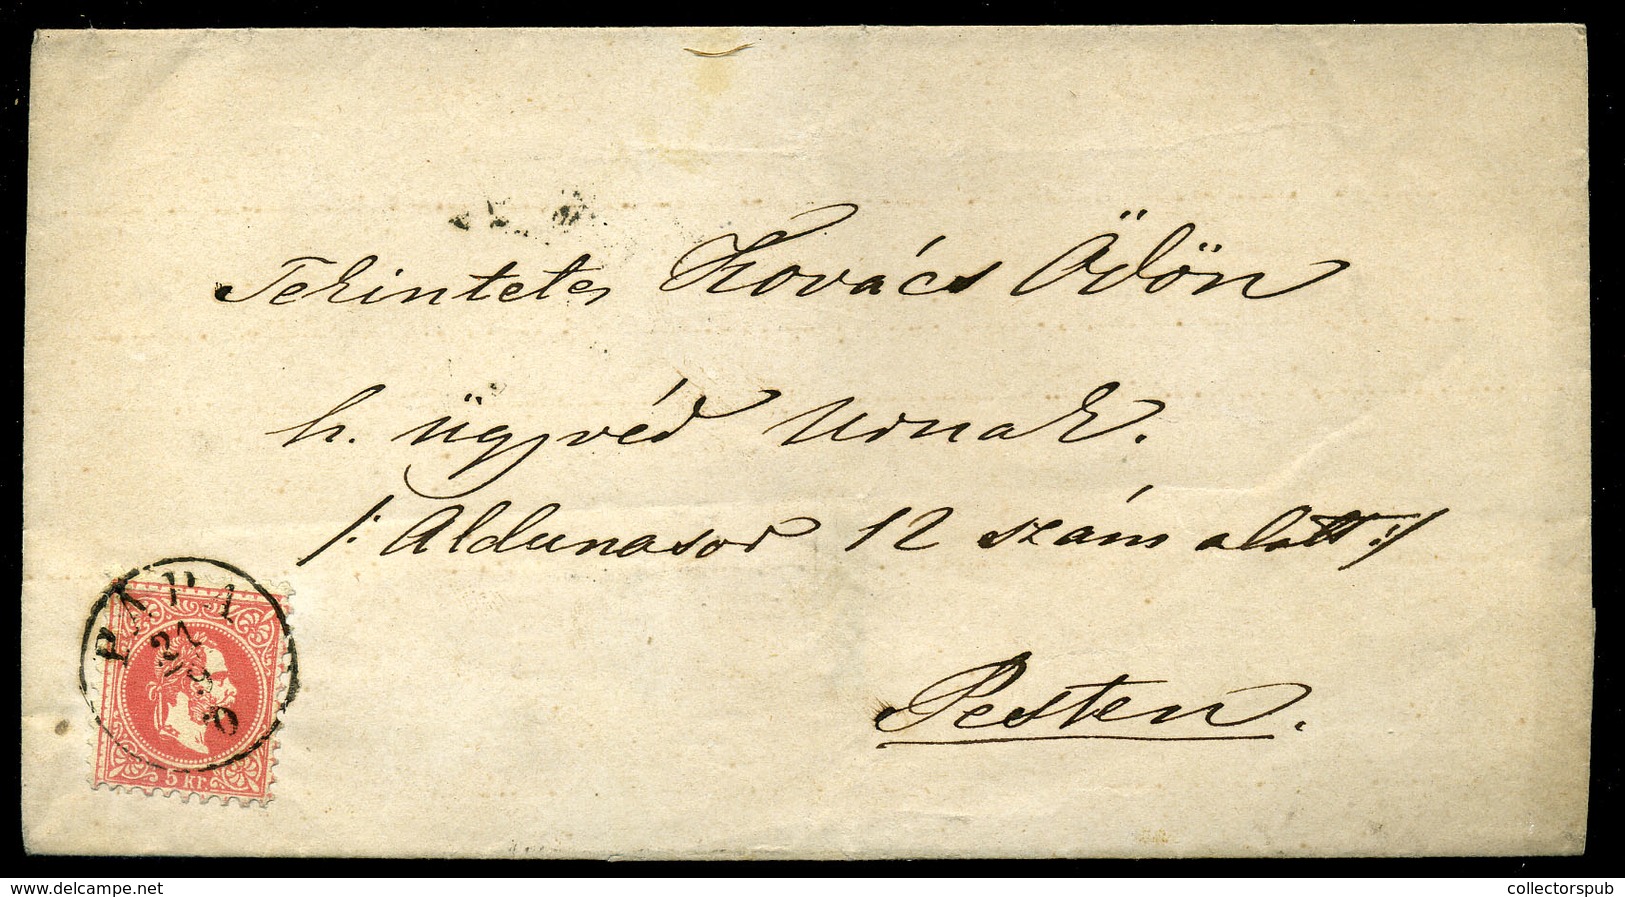 Tekintetes Kovács Ödön
h. ügyvéd Urnak.
/: Aldunasor 12 szám alatt :/
Pesten.
PÁPA
21
5 kr.
oldthing.de-PIC-collectorspub